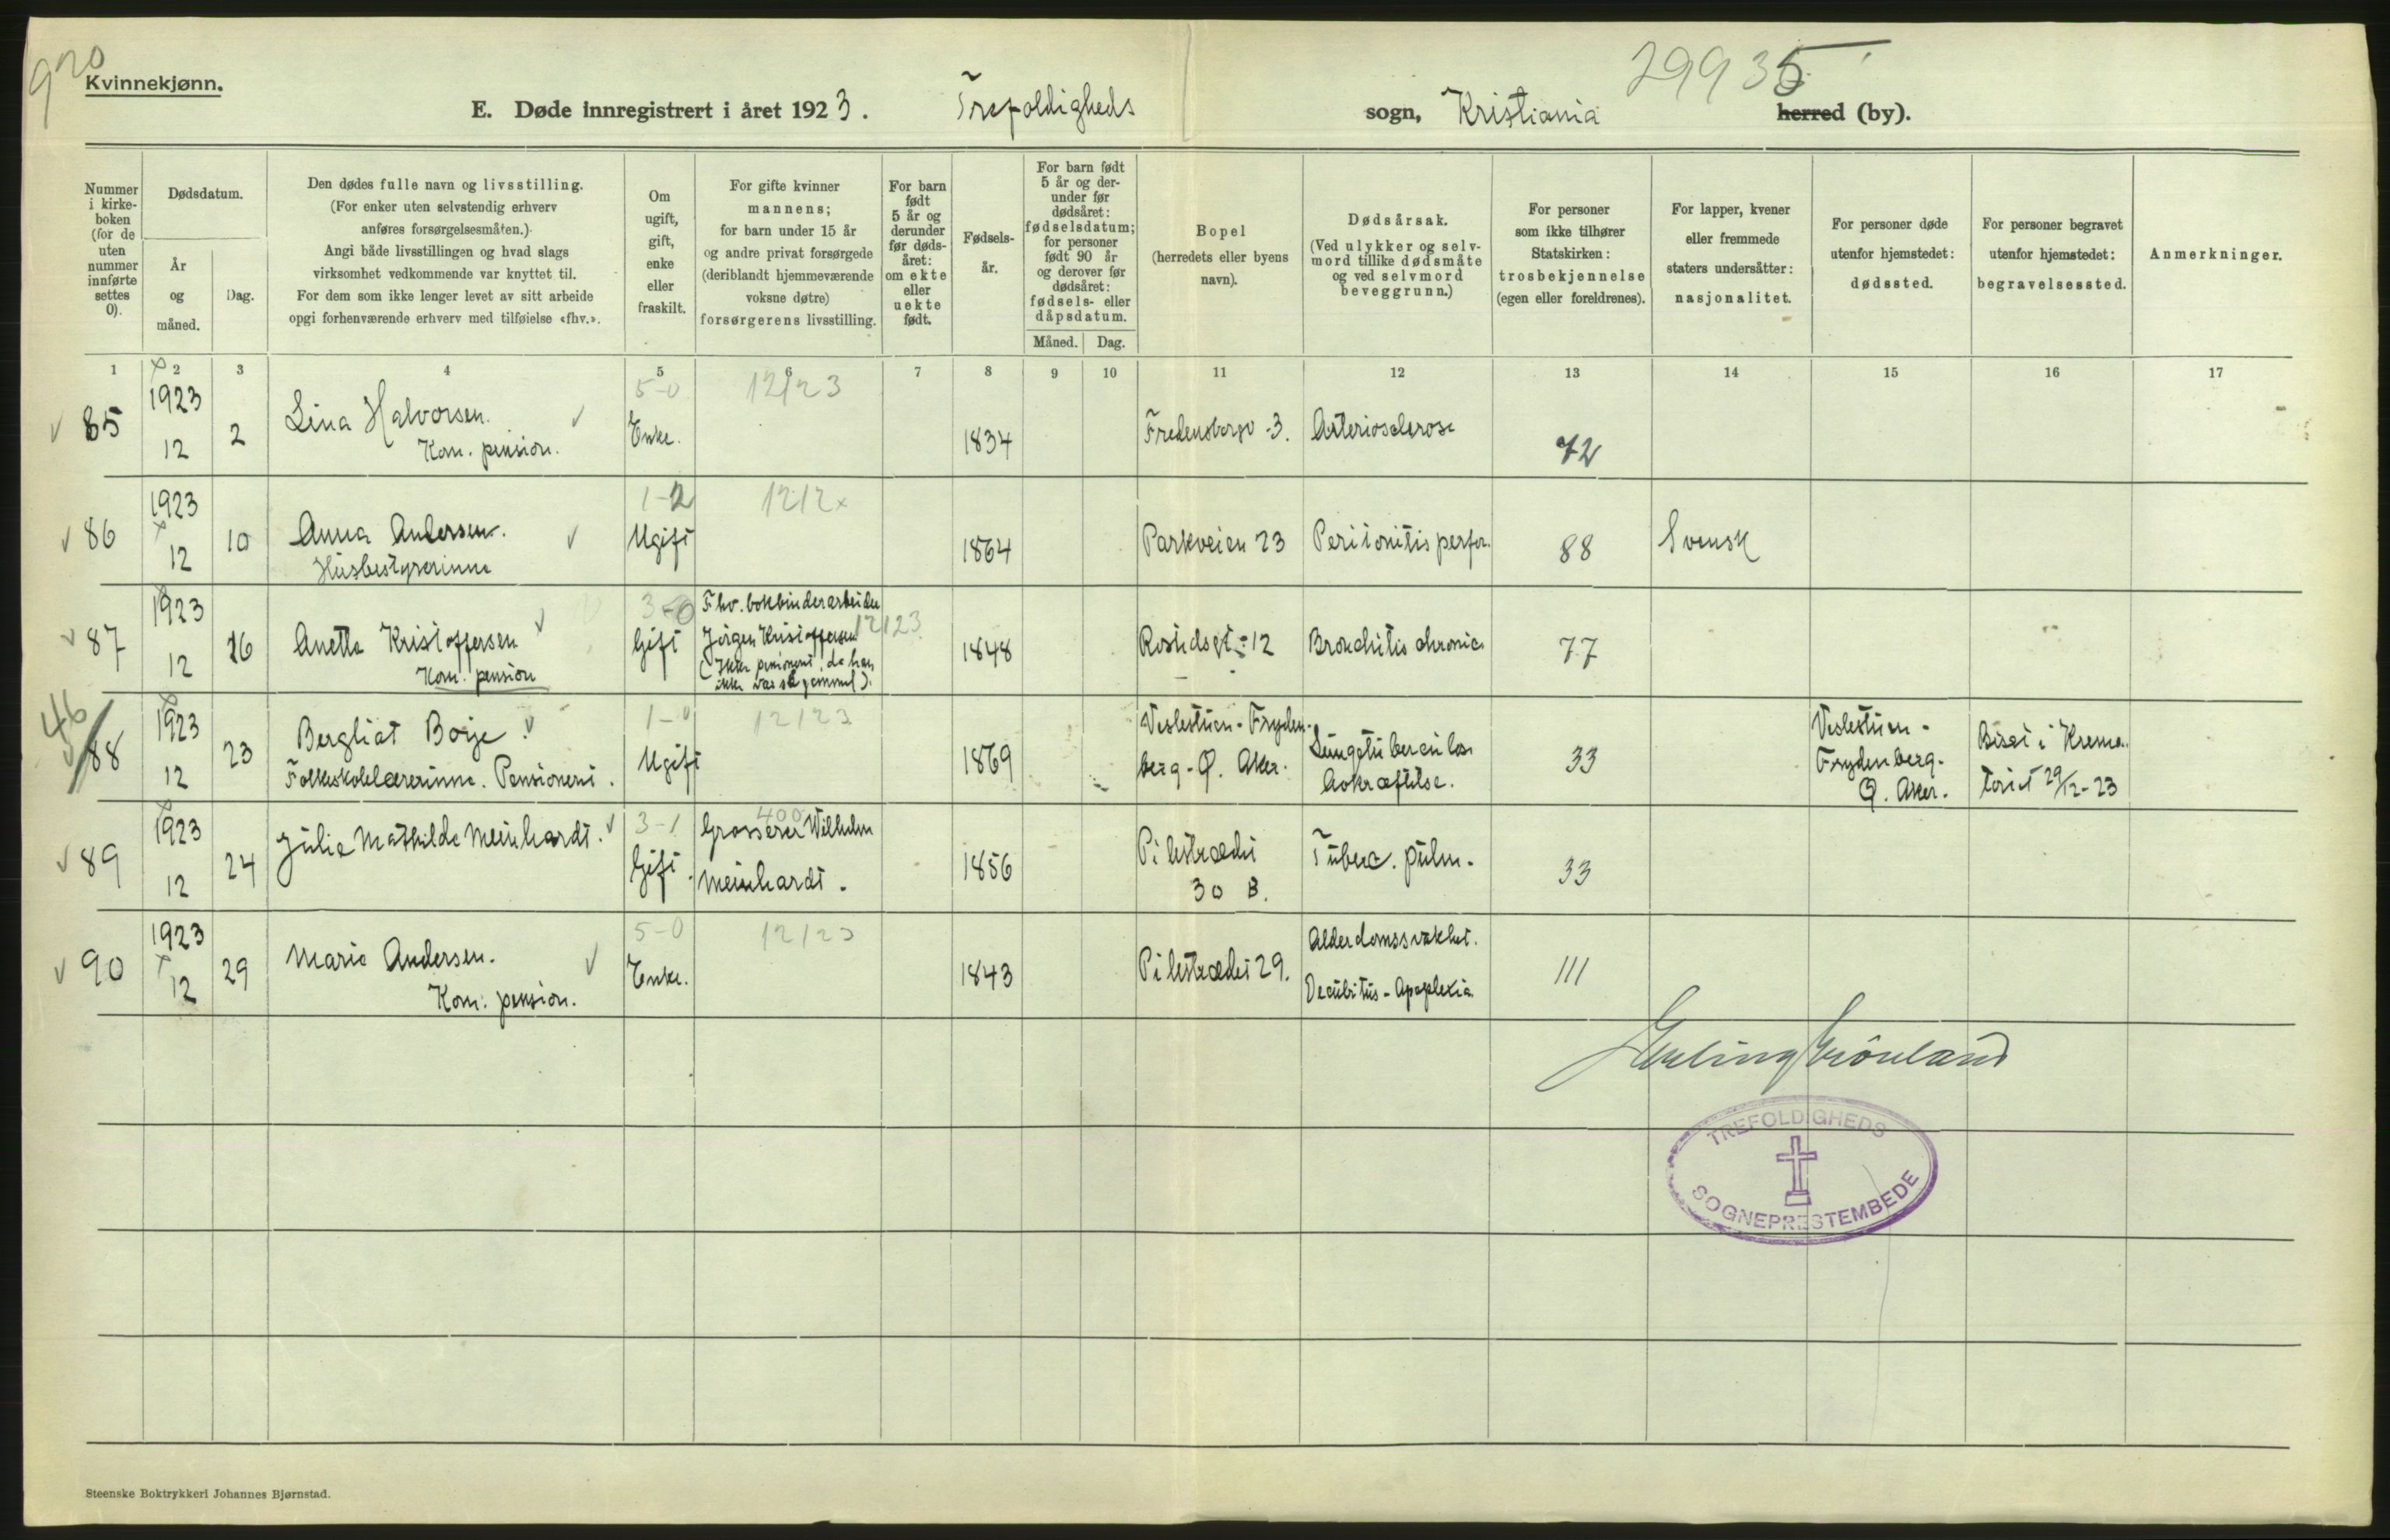 920
Kvinnekjønn.
29935
E. Døde innregistrert i året 1923. Trefoldigheds sogn, Kristiania herred (by).
Nummer i kirke-boken (for de uten nummer innførte settes 0).
Dødsdatum.
År og måned.
Dag.
Den dødes fulle navn og livsstilling.
(For enker uten selvstendig erhverv
anføres forsørgelsesmåten.)
Angi både livsstillingen og hvad slags
virksomhet vedkommende var knyttet til.
For dem som ikke lenger levet av sitt arbeide
opgi forhenværende erhverv med tilføielse «fhv.».
Om ugift, gift, enke eller fraskilt.
For gifte kvinner
mannens;
for barn under 15 år
og andre privat forsørgede
(deriblandt hjemmeværende
voksne døtre)
forsørgerens livsstilling.
For barn født 5 år og derunder før døds-året: om ekte eller uekte født.
Fødsels-år.
For barn født 5 år og der-under før dødsåret: fødselsdatum; for personer født 90 år og derover før dødsåret: fødsels- eller dåpsdatum.
Måned. Dag.
Bopel
(herredets eller byens
navn).
Dødsårsak.
(Ved ulykker og selv-
mord tillike dødsmåte
og ved selvmord
beveggrunn.)
For personer
som ikke tilhører
Statskirken:
trosbekjennelse
(egen eller foreldrenes).
For lapper, kvener
eller fremmede
staters undersåtter:
nasjonalitet.
For personer døde
utenfor hjemstedet:
dødssted.
For personer begravet
utenfor hjemstedet:
begravelsessted.
Anmerkninger.
1 2 3 4 5 6 7 8 9 10 11 12 13 14 15 16 17
85 1923 12 2 Lina Halvorsen.
Kom. pension.
5-0 Enke. 12/23 1834 Fredensborgv. 3. Arteriosclerose 72
86 1923 12 10 Anna Andersen.
Husbestyrerinne
1-2 Ugift 1864 Parkveien 23 Peritonitis perfor. 88 Svensk
87 1923 12 16 Anette Kristoffersen
Kom. pension
3-0 Gift Fhv. bokbinderarbeider
Jörgen Kristoffersen 12/23
(Ikke pensionert, da han
ikke var så gammel).
1848 12 Bronchitis chronic. 77
88 1923 12 23 Bergliot Borge.
Folkeskolelærerinne. Pensionert.
1-0 Ugift 12/23 1869 Veslestuen - Fryden-
berg - Ø. Aker.
Lungetuberculose
Avkræftelse.
33
Veslestuen -
Frydenberg -
Ø. Aker.
Bisat i Krema-
toriet 29/12-23
89 1923 12 24 Julie Mathilde Meinhardt.
3-1 Gift. 400 Grosserer Wilhelm
Meinhardt.
1856 Pilestrædet
30 B.
Tuberc. pulm. 33
90 1923 12 29 Marie Andersen.
Kom. pension.
5-0 Enke. 12/23 1843 Pilestrædet 29. Alderdomssvakhet.
Decubitus - Apoplexia. 111
Erling Grönland
TREFOLDIGHEDS
SOGNEPRESTEMBEDE
Steenske Boktrykkeri Johannes Bjørnstad.